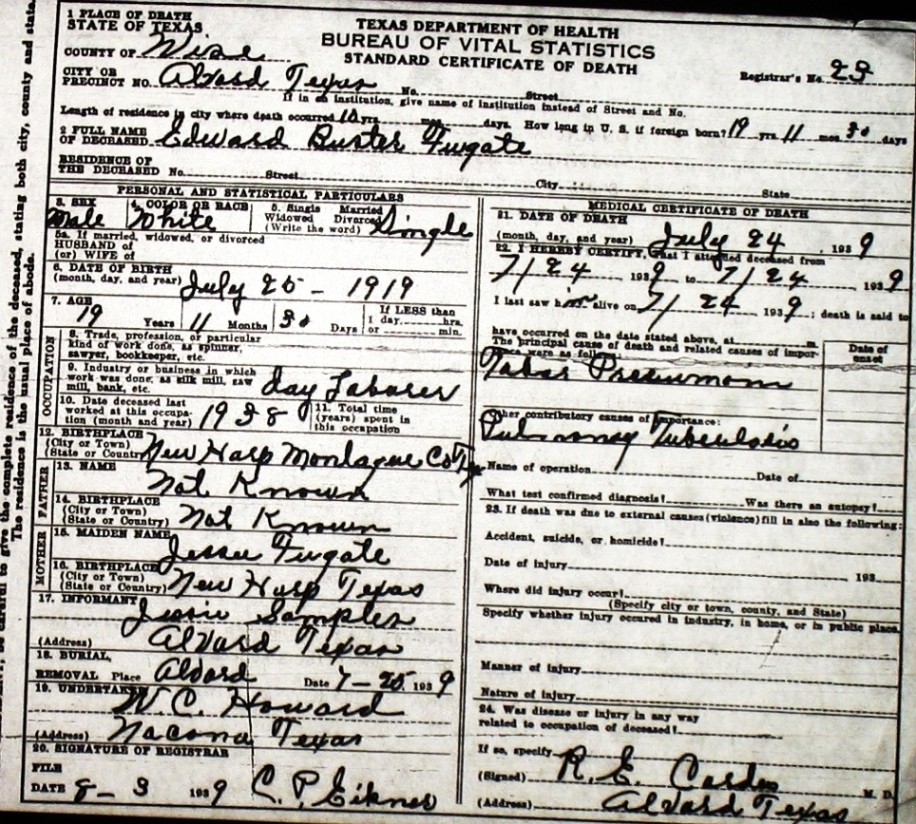 TEXAS DEPARTMENT OF HEALTH
BUREAU OF VITAL STATISTICS
STANDARD CERTIFICATE OF DEATH
1 PLACE OF DEATH
STATE OF TEXAS.
COUNTY OF Wise
Registrar's No. 23
CITY OR PRECINCT NO. Alvord Texas No. Street
If in an institution, give name of institution instead of Street and No.
Length of residence in city where death occurred 10 yrs. mos. days. How long in U. S. if foreign born? 19 yrs. 11 mos. 30 days
2 FULL NAME OF DECEASED Edward Buster Fugate
RESIDENCE OF THE DECEASED No. Street City State
PERSONAL AND STATISTICAL PARTICULARS
3. SEX Male
4. COLOR OR RACE White
5. Single Married Widowed Divorced (Write the word) Single
5a. If married, widowed, or divorced
HUSBAND of
(or) WIFE of
6. DATE OF BIRTH (month, day, and year) July 25 - 1919
7. AGE 19 Years 11 Months 30 Days If LESS than 1 day hrs. or min.
OCCUPATION
8. Trade, profession, or particular kind of work done, as spinner, sawyer, bookkeeper, etc.
9. Industry or business in which work was done, as silk mill, saw mill, bank, etc. day Laborer
10. Date deceased last worked at this occupation (month and year) 1938
11. Total time (years) spent in this occupation
12. BIRTHPLACE (City or Town) (State or Country) New Harp Montague Co Tex
FATHER
13. NAME Not Known
14. BIRTHPLACE (City or Town) (State or Country) Not Known
MOTHER
15. MAIDEN NAME Jessee Fugate
16. BIRTHPLACE (City or Town) (State or Country) New Harp Texas
17. INFORMANT Jessie Samples
(Address) Alvord Texas
18. BURIAL,
REMOVAL Place Alvord Date 7-25 1939
19. UNDERTAKER W. C. Howard
(Address) Nacona Texas
20. SIGNATURE OF REGISTRAR
FILE
DATE 8-3 1939 C. P. Eikner
MEDICAL CERTIFICATE OF DEATH
21. DATE OF DEATH
(month, day, and year) July 24 1939
22. I HEREBY CERTIFY, that I attended deceased from
7/24 1939 to 7/24 1939
I last saw him alive on 7/24 1939; death is said to
have occurred on the date stated above, at m.
The principal cause of death and related causes of importance were as follows:
Date of onset
Other contributory causes of importance:
Name of operation Date of
What test confirmed diagnosis? Was there an autopsy?
23. If death was due to external causes (violence) fill in also the following:
Accident, suicide, or homicide?
Date of injury 193
Where did injury occur?
(Specify city or town, county, and State)
Specify whether injury occured in industry, in home, or in public place.
Manner of injury
Nature of injury
24. Was disease or injury in any way related to occupation of deceased?
If so, specify
(Signed) R. E. M. D.
(Address) Alvord Texas
The residence is the usual place of abode.